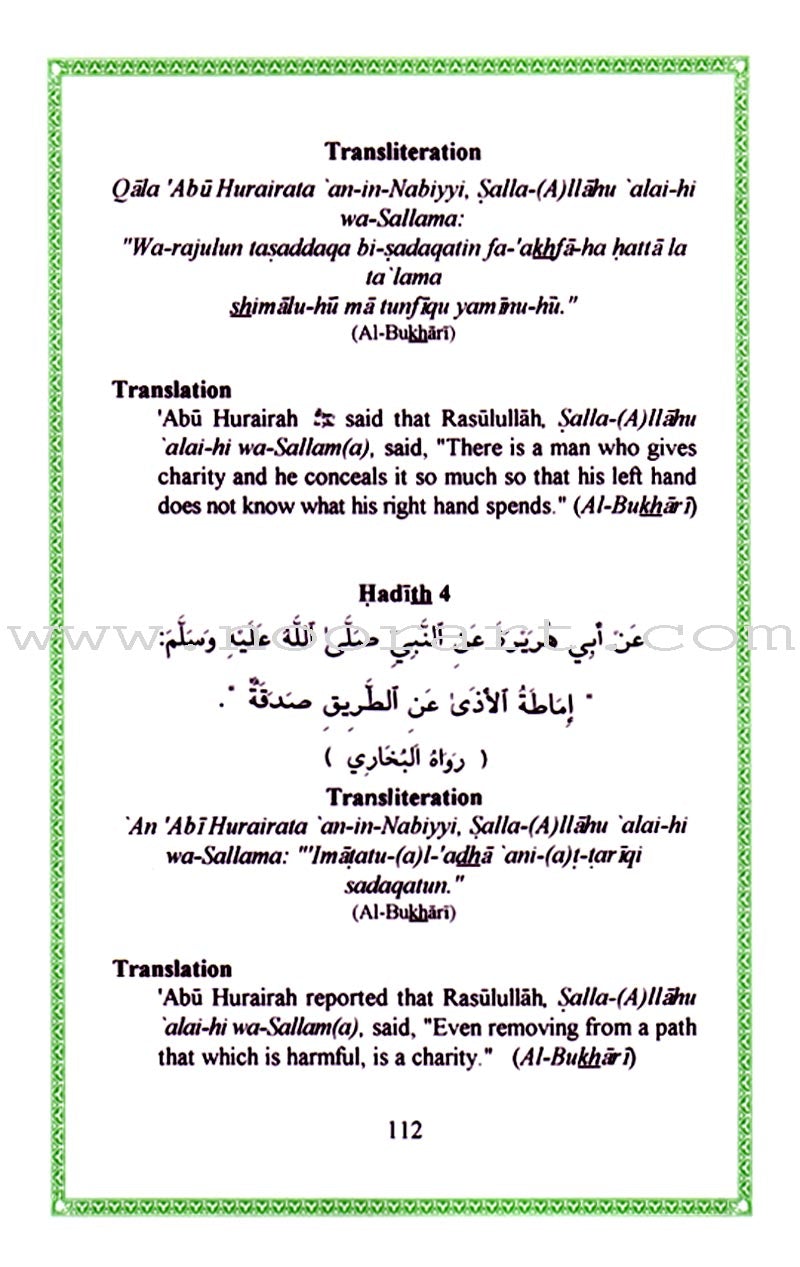 Transliteration
Qāla 'Abū Hurairata `an-in-Nabiyyi, Ṣalla-(A)llāhu `alai-hi
wa-Sallama:
"Wa-rajulun taṣaddaqa bi-ṣadaqatin fa-'akhfā-ha ḥattā la
ta`lama
shimālu-hū mā tunfīqu yamīnu-hū."
(Al-Bukhārī)
Translation
'Abū Hurairah said that Rasūlullāh, Ṣalla-(A)llāhu
`alai-hi wa-Sallam(a), said, "There is a man who gives
charity and he conceals it so much so that his left hand
does not know what his right hand spends." (Al-Bukhārī)
Ḥadīth 4
www.noorart.com
عَنْ أَبِي هُرَيْرَةَ عَنِ ٱلنَّبِيِ صَلَّىٰ ٱللَّهُ عَلَيْهِ وَسَلَّمَ:
" إِمَاطَةُ ٱلأَذَىٰ عَنِ ٱلطَّرِيقِ صَدَقَةٌ ".
( رَوَاهُ ٱلبُخَارِي )
Transliteration
`An 'Abī Hurairata `an-in-Nabiyyi, Ṣalla-(A)llāhu `alai-hi
wa-Sallama: "'Imāṭatu-(a)l-'adhā `ani-(a)ṭ-ṭarīqi
sadaqatun."
(Al-Bukhārī)
Translation
'Abū Hurairah reported that Rasūlullāh, Ṣalla-(A)llāhu
`alai-hi wa-Sallam(a), said, "Even removing from a path
that which is harmful, is a charity." (Al-Bukhārī)
112